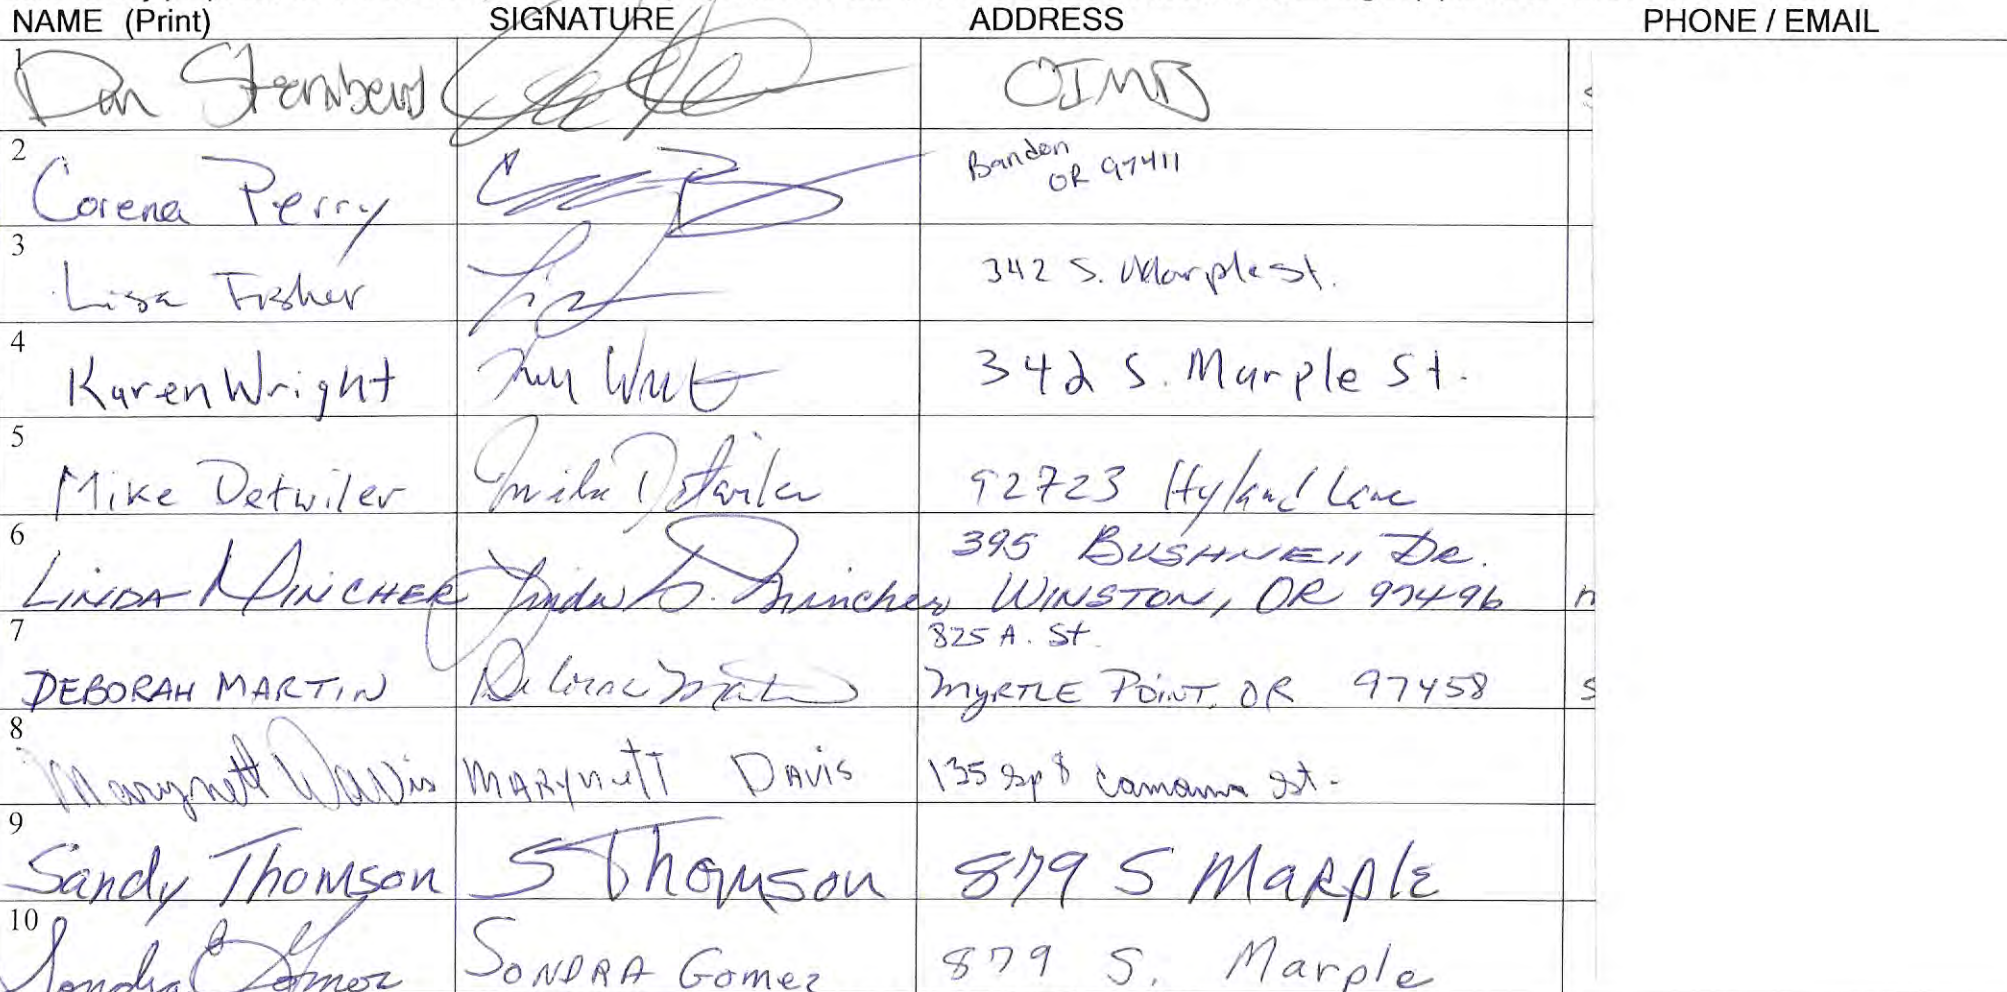 NAME (Print) SIGNATURE ADDRESS PHONE / EMAIL
1 Dan Sternberg OIMB
2 Corena Perry
Bandon
OR 97411
3 Lisa Fisher 342 S. Marple St.
4 Karen Wright 342 S. Marple St.
5 Mike Detwiler Mike Detwiler 92723 Hyland Lane
6 LINDA MINCHER Linda S. Mincher
395 BUSHNEll DR.
WINSTON, OR 97496
7 DEBORAH MARTIN Deborah Martin
825 A. St.
MYRTLE POINT, OR 97458
8 Marynett Davis MARYNETT DAVIS 135 Sp 8 Camama st.
9 Sandy Thomson S Thomson 879 S MARPlE
10 Sondra Gomez SONDRA Gomez 879 S. Marple